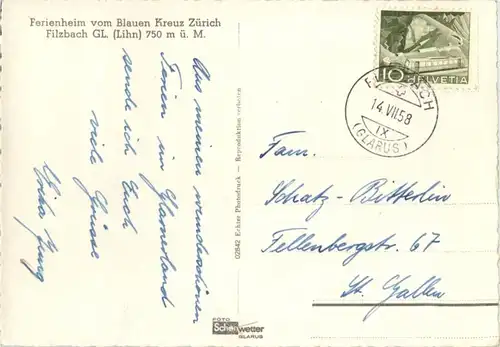 Ferienheim vom Blauen Kreuz Zürich
Filzbach GL. (Lihn) 750 m ü. M.
Aus meinen wunderschönen
Ferien im Glarnerland
sende ich Euch
viele Grüsse
Erika
02842 Echter Photodruck — Reproduktion verboten
FOTO
Schönwetter
GLARUS
10 HELVETIA
FILZBACH
14.VII.58
IX
(GLARUS)
Fam.
Schatz-Bitterli
Tellenbergstr. 67
St. Gallen